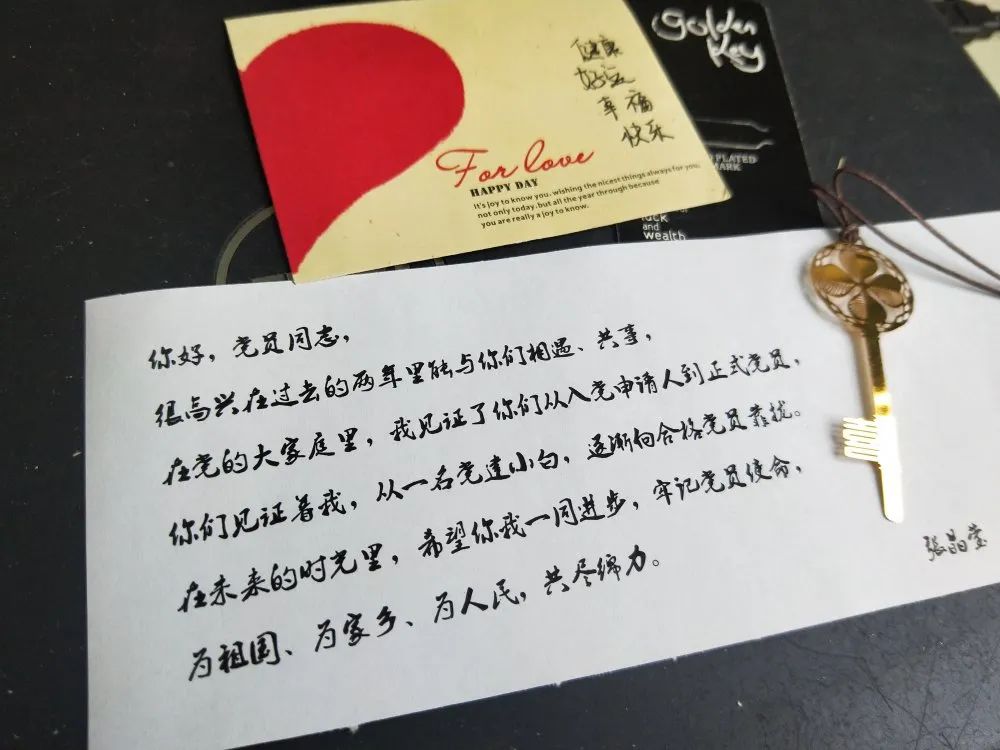 健康
好运
幸福
快乐
For love
HAPPY DAY
It's joy to know you. wishing the nicest things always for you,
not only today. but all the year through because
you are really a joy to know.
Golden
Key
PLATED
MARK
luck
and
wealth
你好，党员同志，
很高兴在过去的两年里能与你们相遇、共事，
在党的大家庭里，我见证了你们从入党申请人到正式党员，
你们见证着我，从一名党建小白，逐渐向合格党员靠拢。
在未来的时光里，希望你我一同进步，牢记党员使命，
为祖国、为家乡、为人民，共尽绵力。
张晶莹